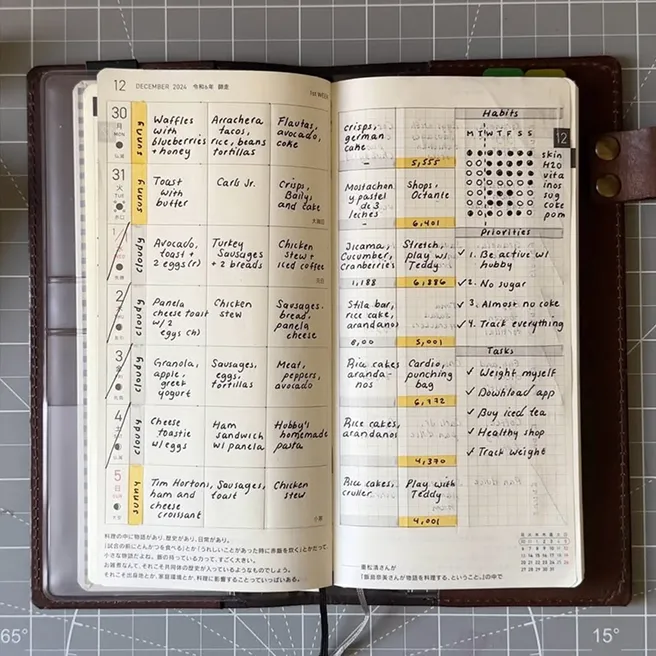 12 DECEMBER 2024 令和6年 師走
1st WEEK
30
月
MON
sunny
Waffles
with
blueberries
+ honey
Arrachera
tacos,
rice, beans
tortillas
Flautas,
avocado,
coke
crisps,
german
cake
–
5,555
31
火
TUE
sunny
Toast
with
butter
Carls Jr.
Crisps,
Baily,
and cake
大晦日
Mostachon
y pastel
de 3
leches
–
Shops,
Octante
6,401
1
cloudy
Avocado,
toast +
2 eggs(r)
Turkey
Sausages
+ 2 breads
Chicken
stew +
iced coffee
元日
Jicama,
Cucumber,
Cranberries
1,188
Stretch,
play w/
Teddy
6,886
2
cloudy
Panela
cheese toast
w/ 2
eggs (h)
Chicken
stew
Sausages,
bread,
panela
cheese
Stila bar,
rice cake,
arandano
0,00
5,001
3
cloudy
Granola,
apple,
greek
yogurt
Sausages,
eggs,
tortillas
Meat,
peppers,
avocado
Rice cakes
aranda-
nos
Cardio,
punching
bag
6,772
4
cloudy
Cheese
toastie
w/ eggs
Ham
sandwich
w/ panela
Hubby's
homemade
pasta
Rice cakes,
arandanos
4,370
5
日
SUN
sunny
Tim Hortons,
ham and
cheese
croissant
Sausages,
toast
Chicken
stew
小寒
Rice cakes,
cruller
Play with
Teddy
4,001
Habits
M T W T F S S
12
skin
H2O
vita
inos
sug
coke
pom
Priorities
✓ 1. Be active w/
hubby
✓ 2. No sugar
✓ 3. Almost no coke
✓ 4. Track everything
Tasks
✓ Weight myself
✓ Download app
✓ Buy iced tea
✓ Healthy shop
✓ Track weight
料理の中に物語があり、歴史があり、日常があり。
「試合の前にとんかつを食べる」とか「うれしいことがあった時に赤飯を炊く」とかだって、
小さな物語だよね。鍋の持っている力って、すごく大きい。
お雑煮なんて、それこそ共同体の歴史が入っているようなものでしょう。
それこそ出身地とか、家庭環境とか、料理に影響することっていっぱいある。
――重松清さんが
『飯島奈美さんが物語を料理する、ということ。』の中で
65°
15°